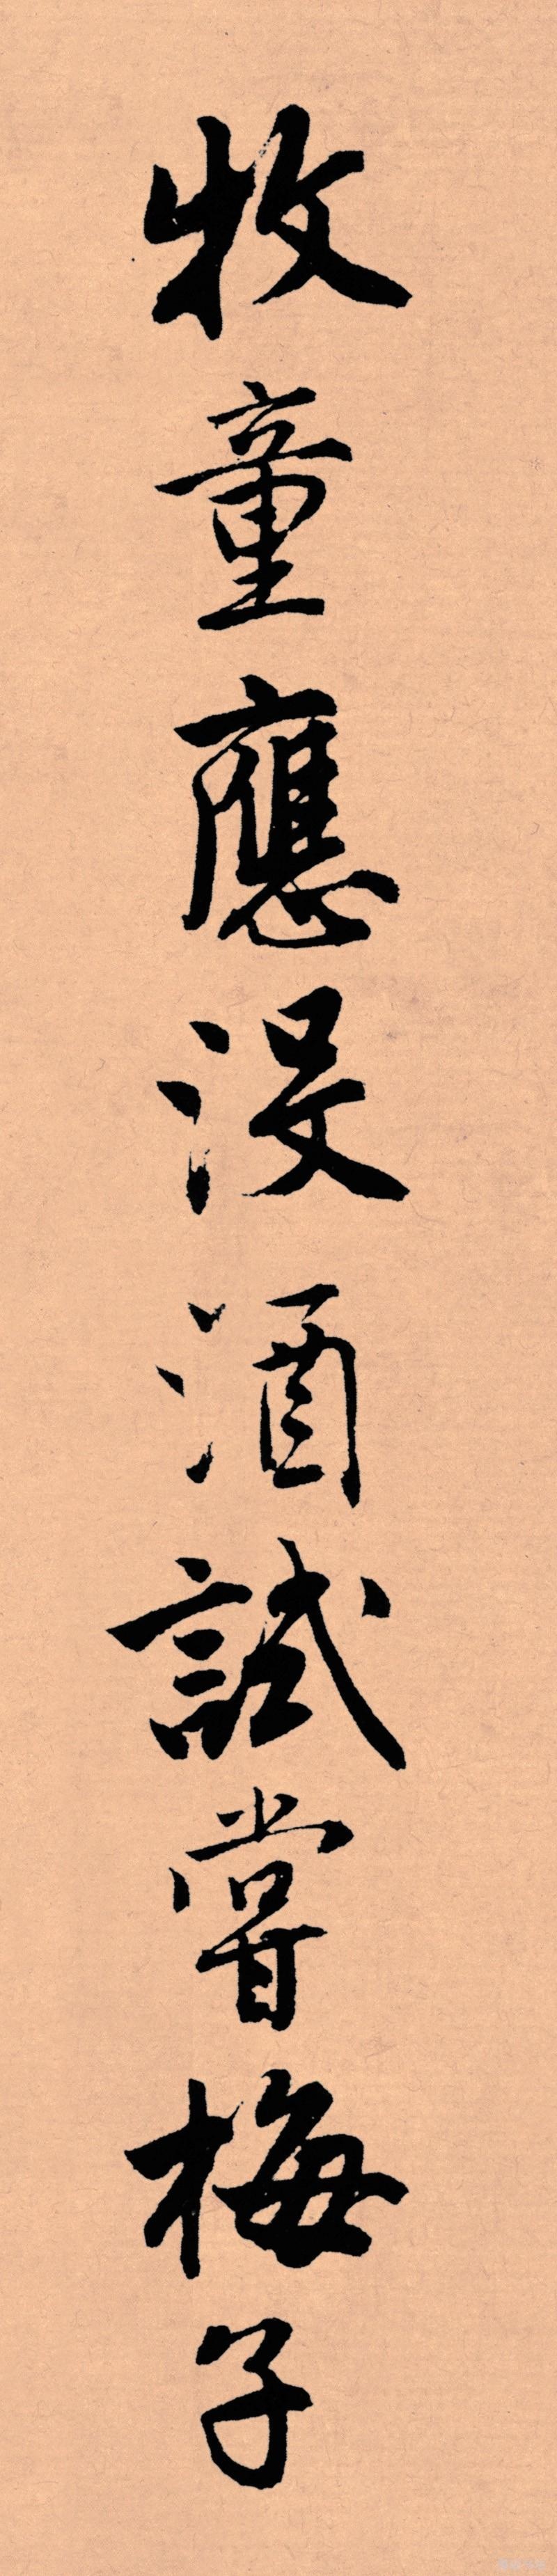 牧童應没酒試嘗梅子